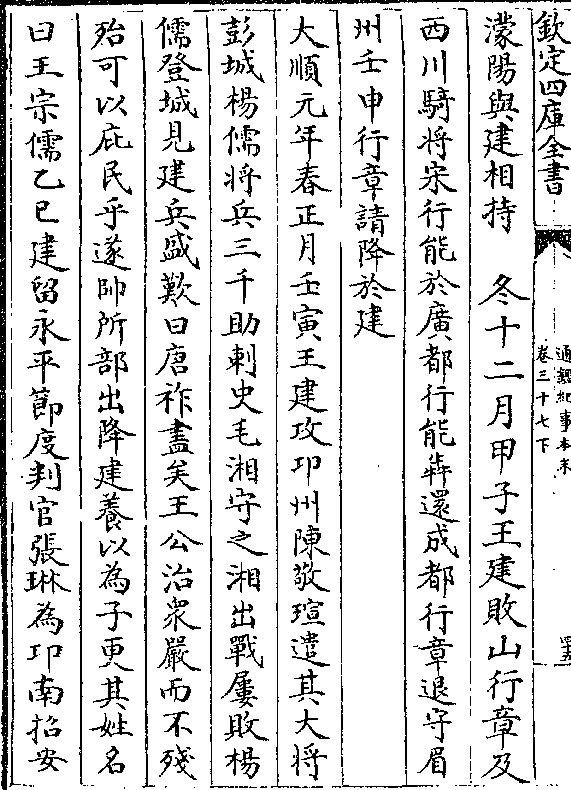 欽定四庫全書
通鑑紀事本末
卷三十七下
濛陽與建相持　冬十二月甲子王建敗山行章及
西川騎將宋行能於廣都行能奔還成都行章退守眉
州壬申行章請降於建
大順元年春正月壬寅王建攻邛州陳敬瑄遣其大將
彭城楊儒將兵三千助刺史毛湘守之湘出戰屢敗楊
儒登城見建兵盛歎曰唐祚盡矣王公治衆嚴而不殘
殆可以庇民乎遂帥所部出降建養以為子更其姓名
曰王宗儒乙巳建留永平節度判官張琳為邛南招安